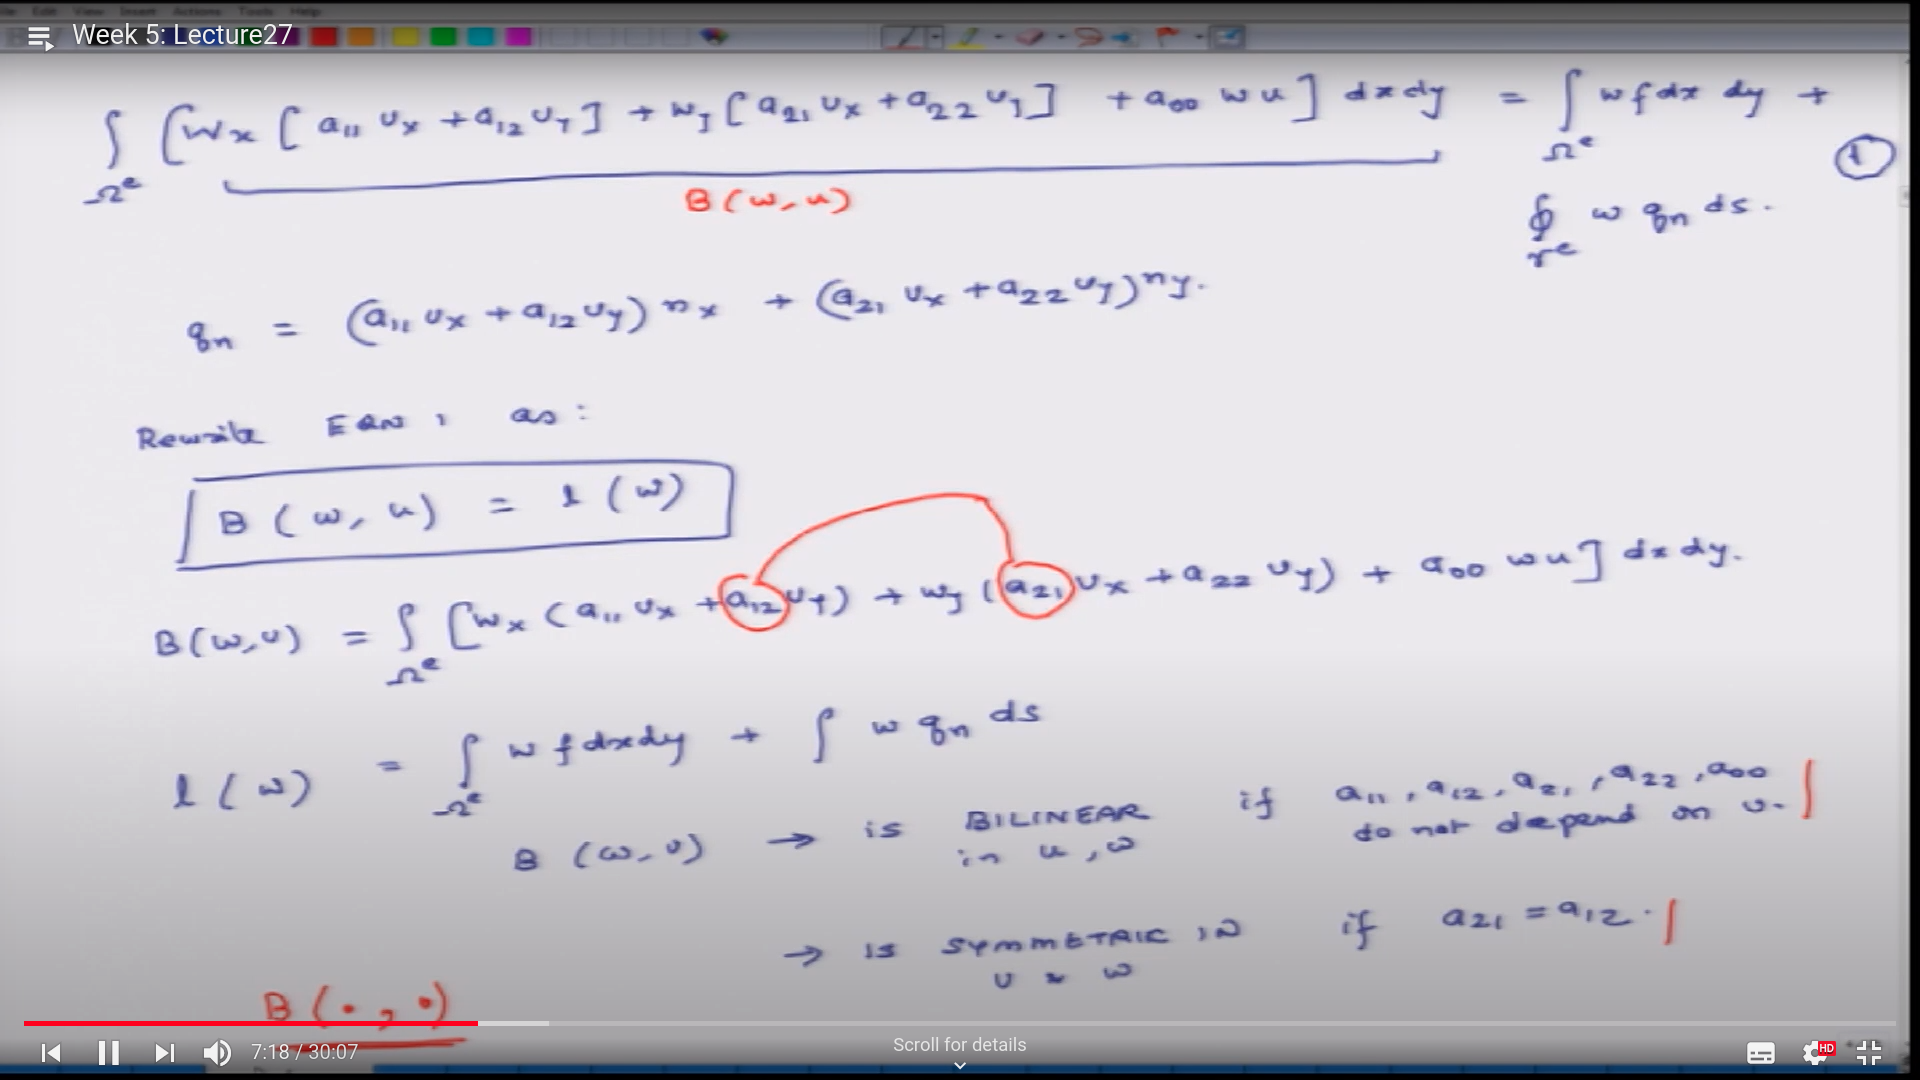 File Edit View Insert Actions Tools Help
Week 5: Lecture27
∫_Ωe [wx [a11 ux + a12 uy] + wy [a21 ux + a22 uy] + a00 w u] dx dy = ∫_Ωe w f dx dy +
B(w, u)
①
∮_Γe w qn ds.
qn = (a11 ux + a12 uy) nx + (a21 ux + a22 uy) ny.
Rewrite EQN 1 as:
B(w, u) = l(w)
B(w, u) = ∫_Ωe [wx (a11 ux + a12 uy) + wy (a21 ux + a22 uy) + a00 w u] dx dy.
l(w) = ∫_Ωe w f dx dy + ∫ w qn ds
B(w, u) → is BILINEAR in u, w if a11, a12, a21, a22, a00 do not depend on u.
→ IS SYMMETRIC IN u & w if a21 = a12.
B(·, ·)
7:18 / 30:07
Scroll for details
HD